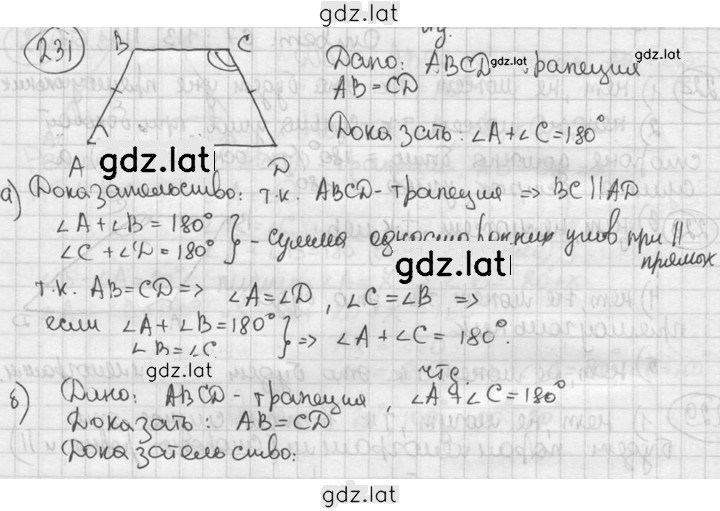 gdz.lat
231
B C
A D
Дано: ABCD gdz.lat трапеция
AB = CD
Доказать: ∠A+∠C=180°
gdz.lat
а) Доказательство: т.к. ABCD - трапеция => BC || AD
∠A + ∠B = 180°
∠C + ∠D = 180° } - сумма односторонних углов при ||
прямых
gdz.lat
т.к. AB = CD => ∠A = ∠D , ∠C = ∠B =>
если ∠A + ∠B = 180°
∠B = ∠C } => ∠A + ∠C = 180°.
gdz.lat
чтд.
б) Дано: ABCD - трапеция, ∠A + ∠C = 180°
Доказать: AB = CD
Доказательство:
gdz.lat